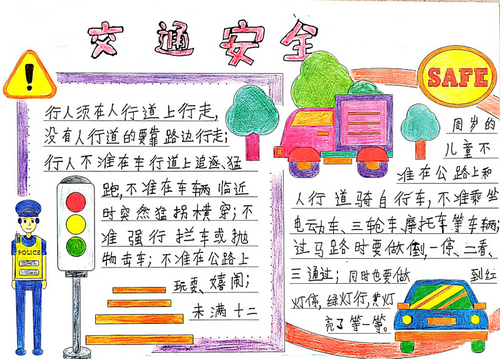 交通安全
SAFE
行人须在人行道上行走,
没有人行道的要靠路边行走;
行人不准在车行道上追逐、猛
跑,不准在车辆临近
时突然猛拐横穿;不
准强行拦车或抛
物击车;不准在公路上
玩耍、嬉闹;
未满十二
周岁的
儿童不
准在公路上和
人行道骑自行车,不准乘坐
电动车、三轮车、摩托车等车辆;
过马路时要做倒,一停、二看、
三通过;同时也要做到红
灯停,绿灯行,黄灯
亮了等一等。
POLICE